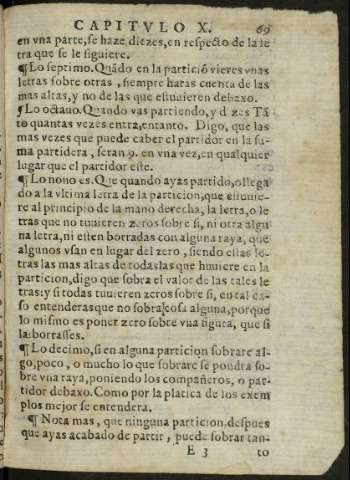 CAPITVLO X. 69
en vna parte, se haze diezes, en respecto de la le
tra que se le siguiere.
¶ Lo septimo. Quãdo en la particiõ vieres vnas
letras sobre otras, siempre haras cuenta de las
mas altas, y no de las que estuuieren debaxo.
¶ Lo octauo. Quando vas partiendo, y dizes Tã
to quantas vezes entra, entanto. Digo, que las
mas vezes que puede caber el partidor en la su-
ma partidera, seran 9. en vna vez, en qualquier
lugar que el partidor este.
¶ Lo nono es. Que quando ayas partido, o llega
do a la vltima letra de la particion, que estuuie-
re al principio de la mano derecha, la letra, o le
tras que no tuuieren zeros sobre si, ni otra algu
na letra, ni esten borradas con alguna raya, que
algunos vsan en lugar del zero, siendo estas le-
tras las mas altas de todas las que huuiere en la
particion, digo que sobra el valor de las tales le
tras: y si todas tuuieren zeros sobre si, en tal ca-
so entenderas que no sobra cosa alguna, porque
lo mismo es poner zero sobre vna figura, que si
la borrasses.
¶ Lo decimo, si en alguna particion sobrare al-
go, poco, o mucho lo que sobrare se pondra so-
bre vna raya, poniendo los compañeros, o par-
tidor debaxo. Como por la platica de los exem
plos mejor se entendera.
¶ Nota mas, que ninguna particion, despues
que ayas acabado de partir, puede sobrar tan-
E 3 to